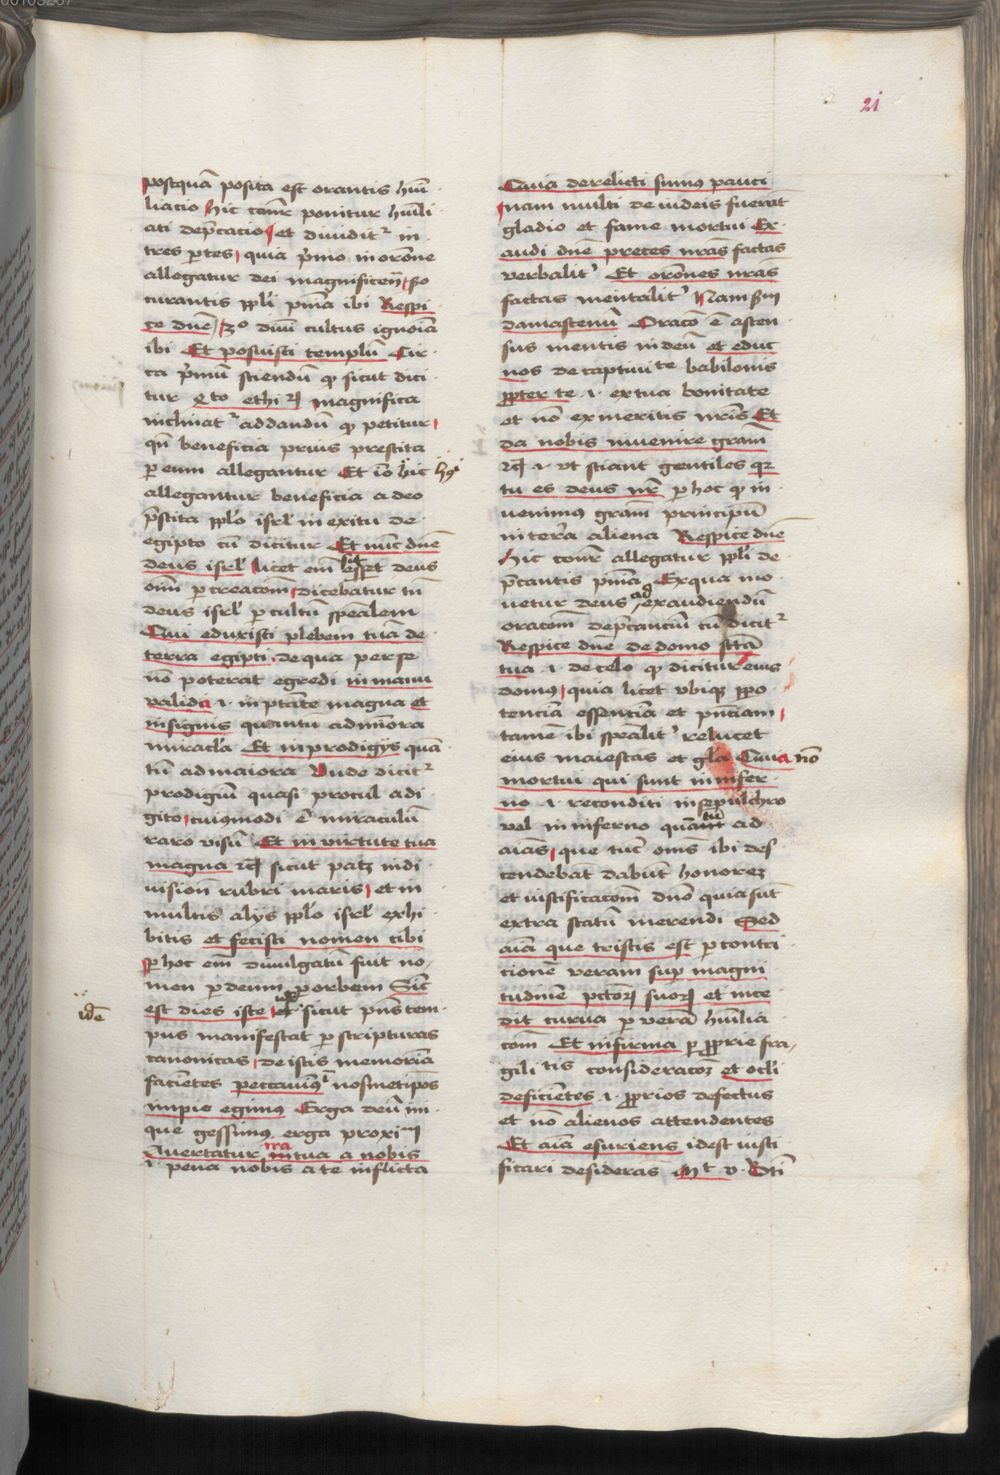 21
postquā posita est orantis hūi
liacio hic cōnr ponitur hūili
ati dep̄catio et dividitr in
tres p̄tes quia p̄mo in orōne
allegatur dei magnificēn 2o
curantis ppli pm̄a ibi Respi
ce dn̄e 3o divi cultus ignoīa
ibi Et posuisti templū Cir
ca p̄mū sciendū qd sicut dici
tur 4to ethicoꝝ magnifica
addendū qd petitur
qn̄ beneficia prius prestita
per eum allegantur Et iō hic hys
allegantur beneficia a deo
p̄stita pplo isrl in exitu de
egipto cū dicitur Et nūc dn̄e
deus isrl licet em̄ sit deus
om̄ p creacōm dicebatur tn̄
deus isrl p cultū spēalem
Qui eduxisti plebem tuā de
terra egipti de qua per se
nō poterat egredi in manu
valida .i. in ptāte magna et
in signis quantū ad minora
miracla Et in prodigijs quā
tū ad maiora Unde dicitr
prodigiū quasi procul a di
gito cuiusmodi ē miraculū
raro visū Et in virtute tua
magna rcꝫ sicut patꝫ in di
uisiōn rubri maris et in
multis alijs pplo isrl exhi
bitis et fecisti nomen tibi
p hoc em̄ divulgatū fuit no
men p deum p orbem Sic
est dies iste sicut pn̄s tem
idē
pus manifestat p scripturas
canonicas de istis memoriā
faciētes peccauimꝰ nosmetipōs
impie egimꝰ Erga deū ini
que gessimꝰ erga proximū
Avertatur ira tua a nobis
.i. pena nobis a te inflicta
Quia derelicti sumꝰ pauci
nam multi de iudeis fuerāt
gladio et fame mortui Ex
audi dn̄e preces nrās factas
verbalitr Et orōnes nrās
factas mentalitr Nam scdm
damascenū Oracō ē ascen
sus mentis in deū et educ
nos de captiuitate babilonis
ppter te .i. ex tua bonitate
et nō ex meritis nrīs Et
da nobis invenire grām
rcꝫ .i. vt sciant gentiles qꝛ
tu es deus nr̄ p hoc qd in
venimꝰ grām principū
in terra aliena Respice dn̄e
hic cōnr allegatur ppli de
p̄cantis pm̄a Ex qua mo
uetur deus ad exaudiendū
oracōm dep̄canciū cū dicitr
Respice dn̄e de domo scta
tua .i. de celo qd dicitur eius
domꝰ quia licet vbiqꝫ ppo
tenciā essentiā et pn̄tiam
tamē ibi spēalitr relucet
eius maiestas et gla Quia nō
mortui qui sunt in infer
no .i. reconditi in sepulchro
val in inferno quātū ad
aīas que tūc om̄s ibi des
cendebāt dabūt honorez
et iustificacōm dn̄o quia sūt
extra statū merendi Sed
aīa que tristis est p contri
tionē veram sup magni
tudinē pctoꝝ suoꝝ et ince
dit curua p verā hūilia
cōm Et infirma p pprie fra
gilitatis consideracōꝫ et ocli
deficiētes .i. pprios defectus
et nō alienos attendentes
Et aīa esuriens id est iusti
ficari desiderās Mt v. Bti